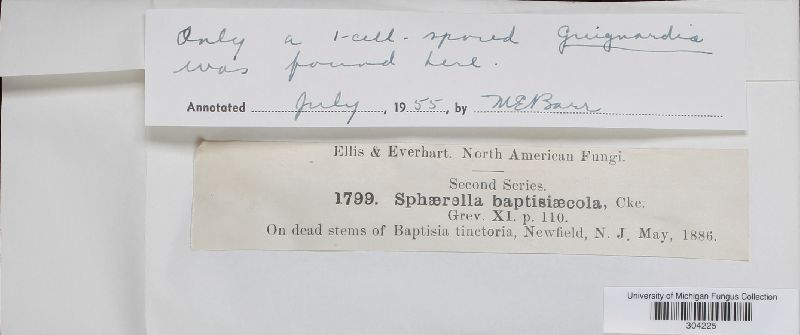 Only a 1-cell-spored Guignardia
was found here.
Annotated July, 1955, by MEBarr
Ellis & Everhart. North American Fungi.
Second Series.
1799. Sphærella baptisiæcola, Cke.
Grev. XI. p. 110.
On dead stems of Baptisia tinctoria, Newfield, N. J. May, 1886.
University of Michigan Fungus Collection
304225